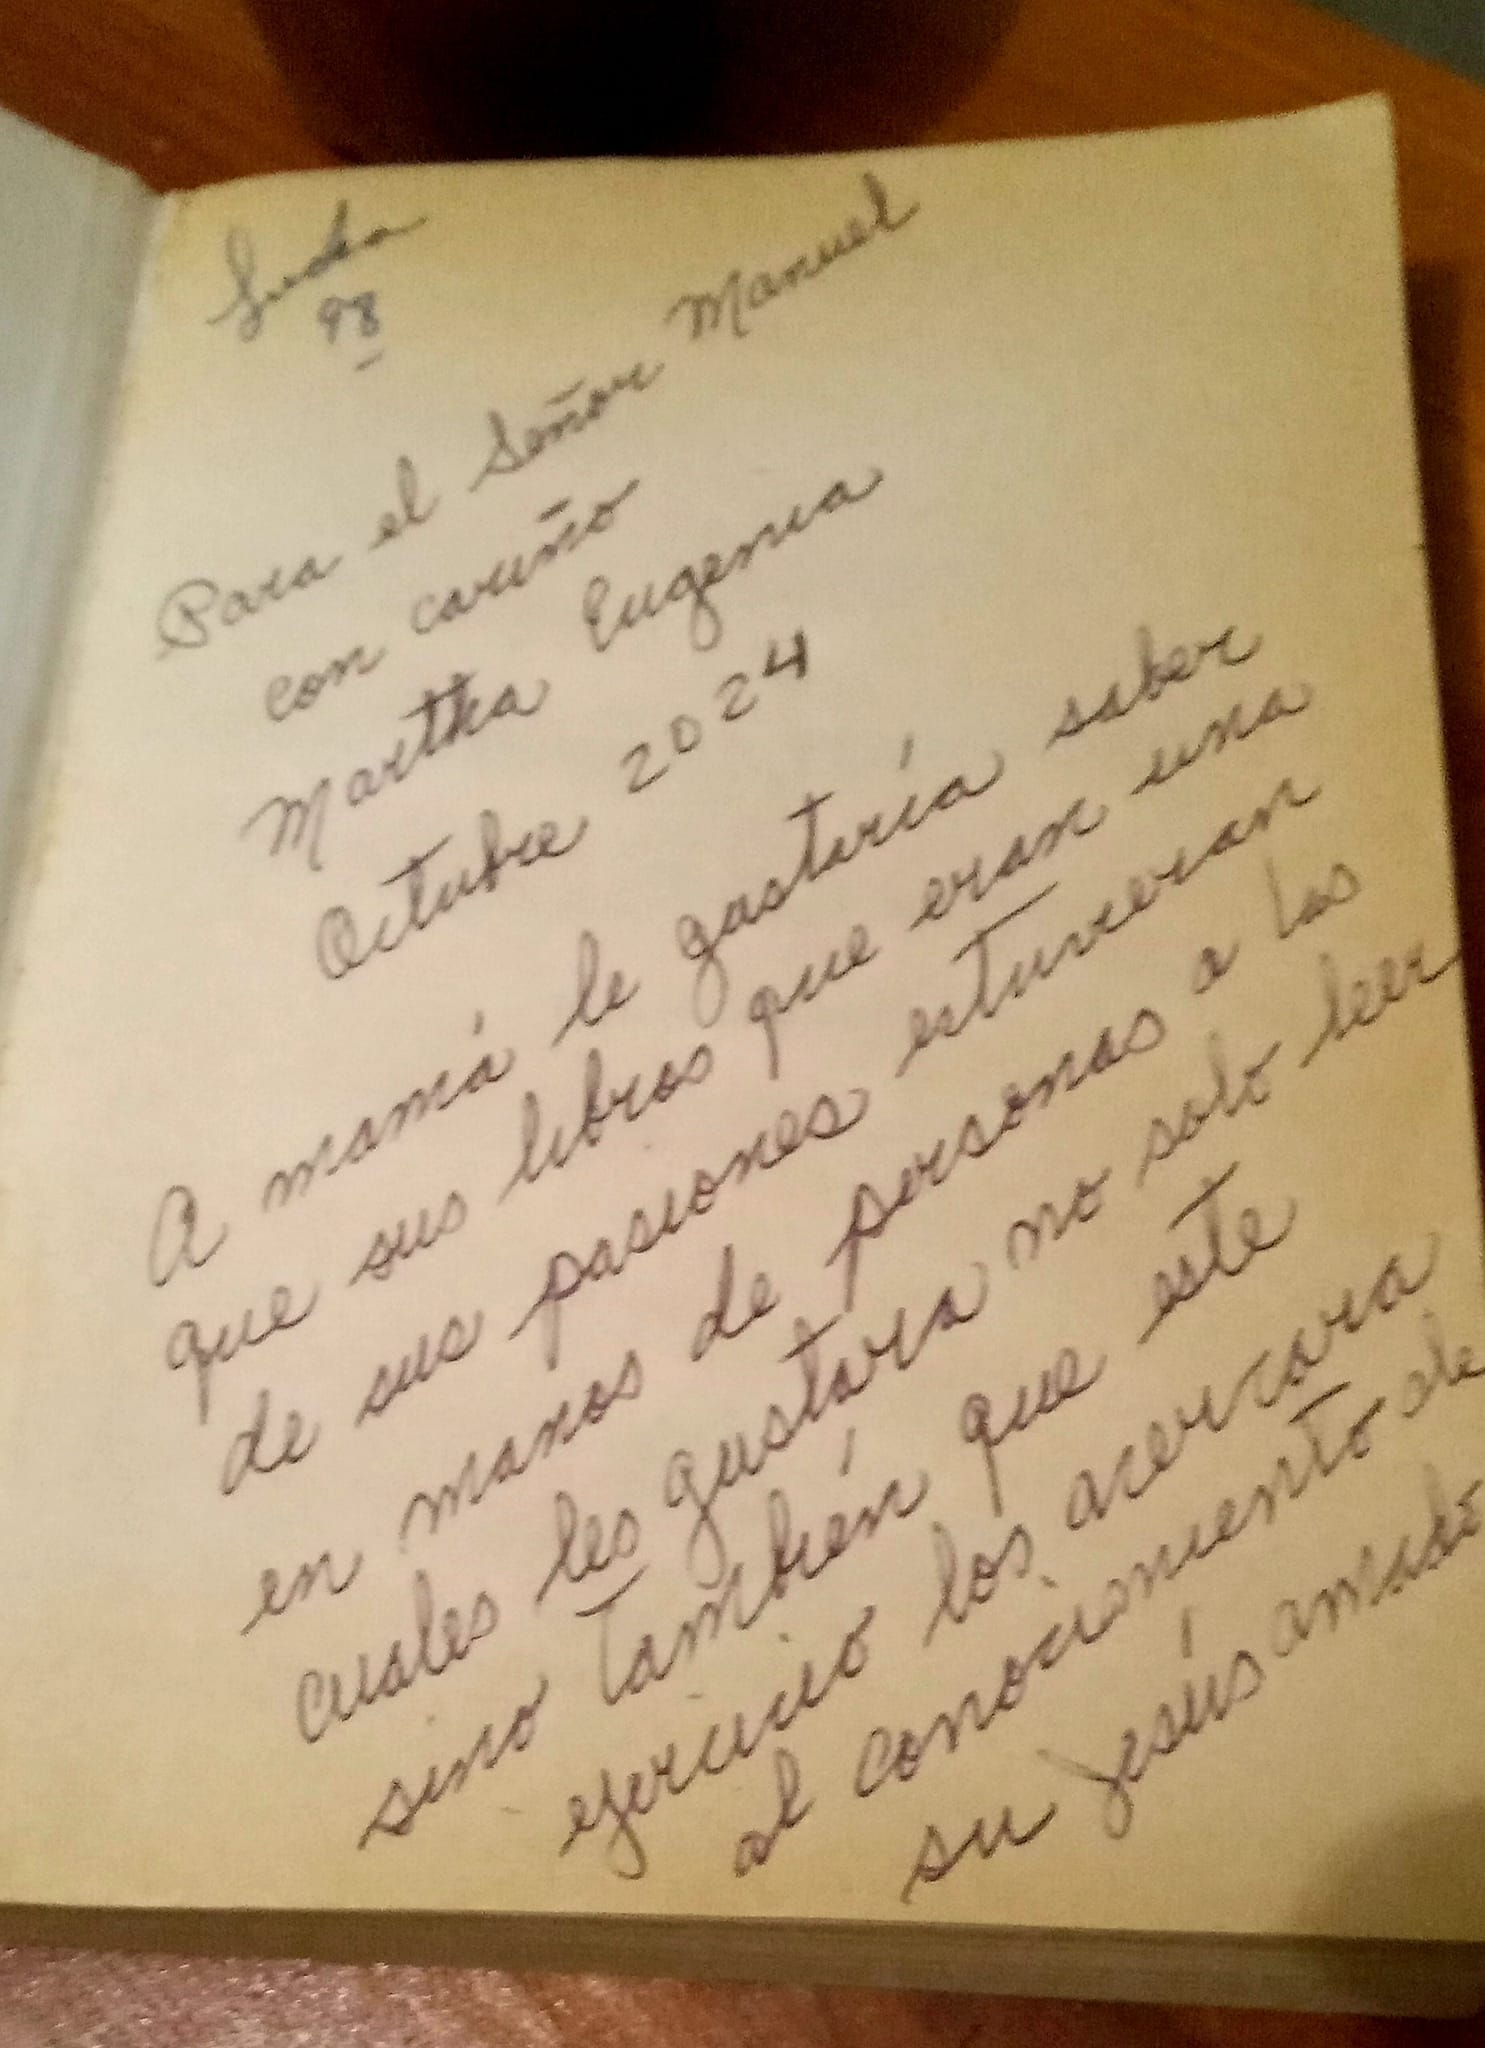 98
Para el Señor Manuel
con cariño
Martha Eugenia
Octubre 2024
A mamá le gustiría saber
que sus libros que eran una
de sus pasiones estuvieran
en manos de personas a las
cuales les gustara no solo leer
sino también que este
ejercicio los acercara
al conocimiento de
su Jesús amado